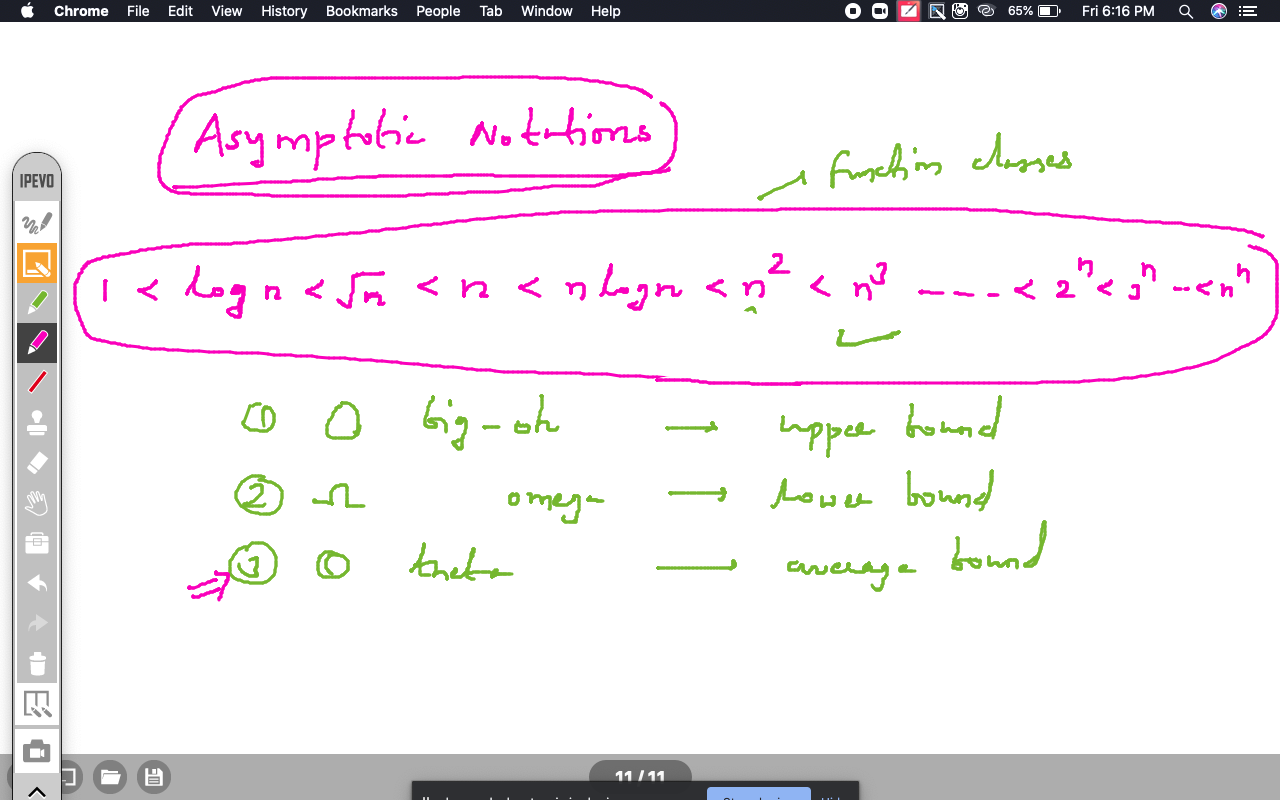 Chrome File Edit View History Bookmarks People Tab Window Help 65% Fri 6:16 PM
Asymptotic Notations
function classes
IPEVO
1 < log n < √n < n < n log n < n² < n³ ---- < 2ⁿ < 3ⁿ -- < nⁿ
① O big-oh → upper bound
② Ω omega → Lower bound
③ Θ theta → average bound
11 / 11